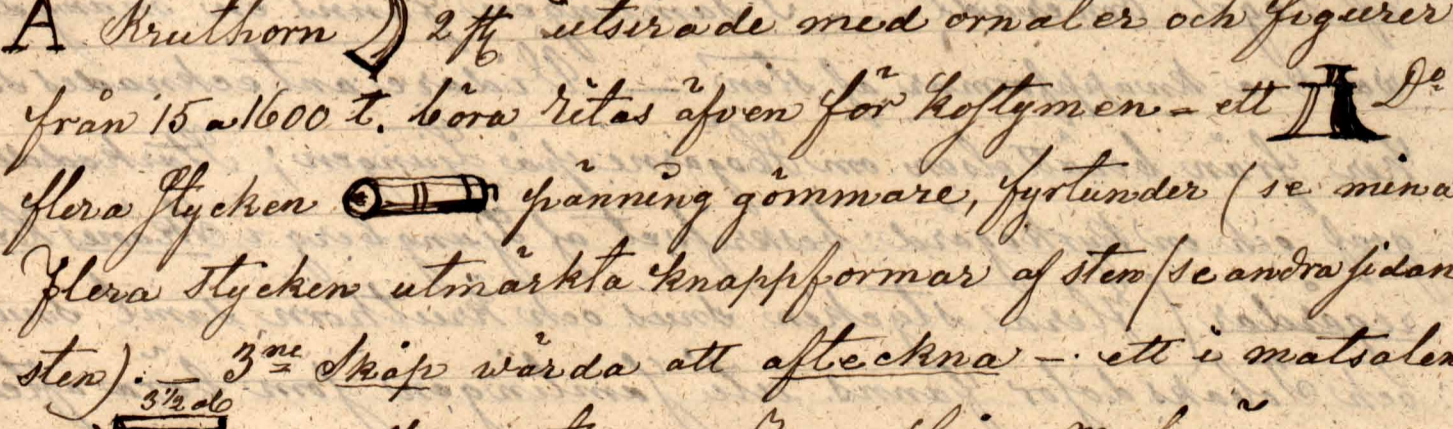 A Kruthorn 2 st utsirade med ornaler och figurer
från 15 a 1600 t. böra ritas äfven för kostymen - ett Do
flera stycken pänning gömmare, fyrtunder (se mina
Flera stycken utmärkta knappformar af sten (se andra sidan
sten). — 3ne Skåp wärda att afteckna — ett i matsalen
3 1/2 al